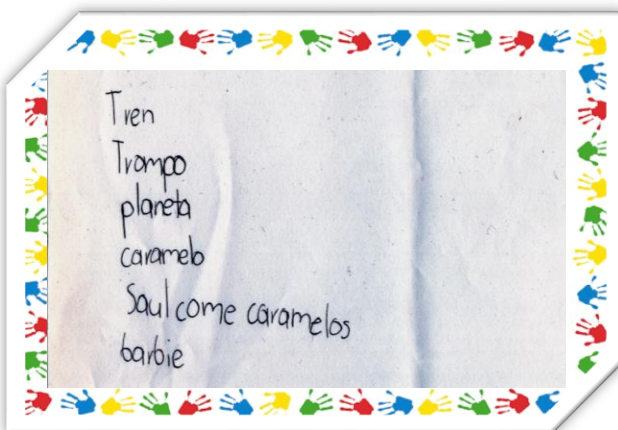 Tren
Trompo
planeta
caramelo
Saul come caramelos
barbie